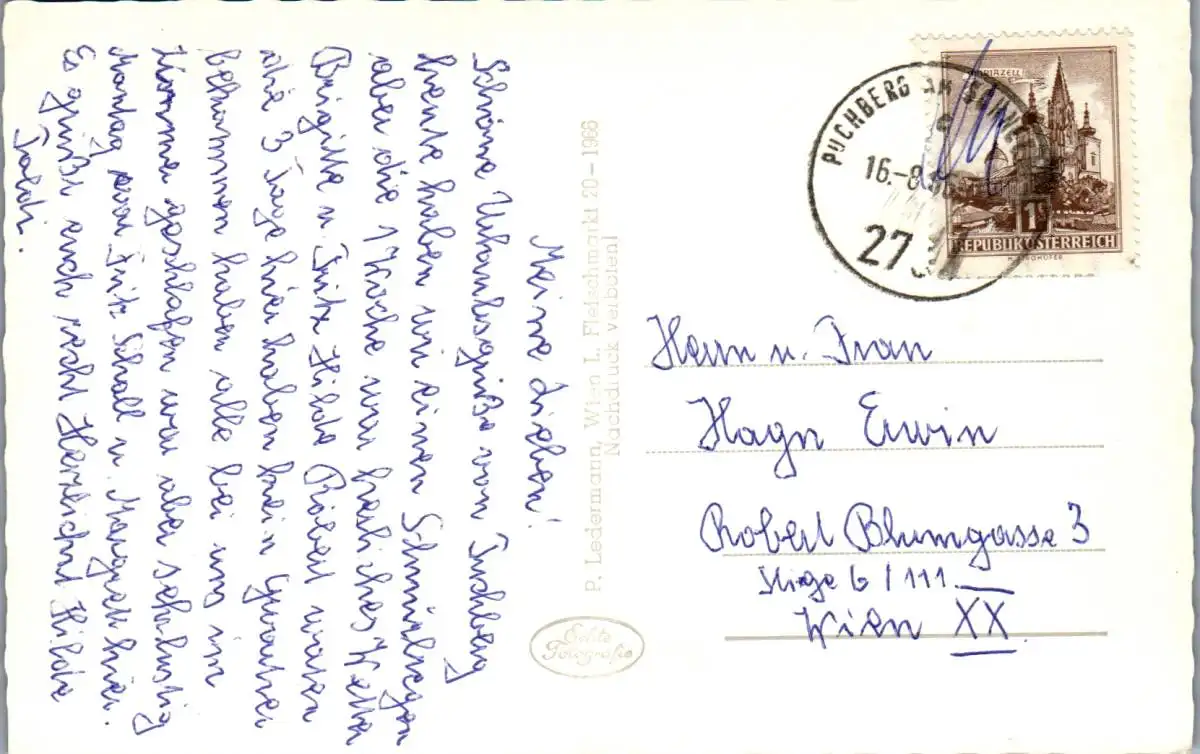 Meine Lieben!
Schöne Urlaubsgrüße von Puchberg
heute haben wir einen Schnürlregen
aber die 1 Woche war herliches Wetter
Brigitte u. Fritz Hilde Robert waren
die 3 Tage hier haben kein Quartier
bekommen haben alle bei uns im
Zimmer geschlafen war aber sehr lustig
Montag war Fritz Schall u. Margret hier.
Es grüßt euch recht Herzlichst Hilde
Poldi.
P. Ledermann, Wien I., Fleischmarkt 20 – 1966
Nachdruck verboten!
Echte
Fotografie
PUCHBERG AM SCHNEE
16.-8.
273
MARIAZELL
1S
REPUBLIK ÖSTERREICH
Herrn u. Frau
Hagn Erwin
Robert Blumgasse 3
Stiege 6/111.
Wien XX.